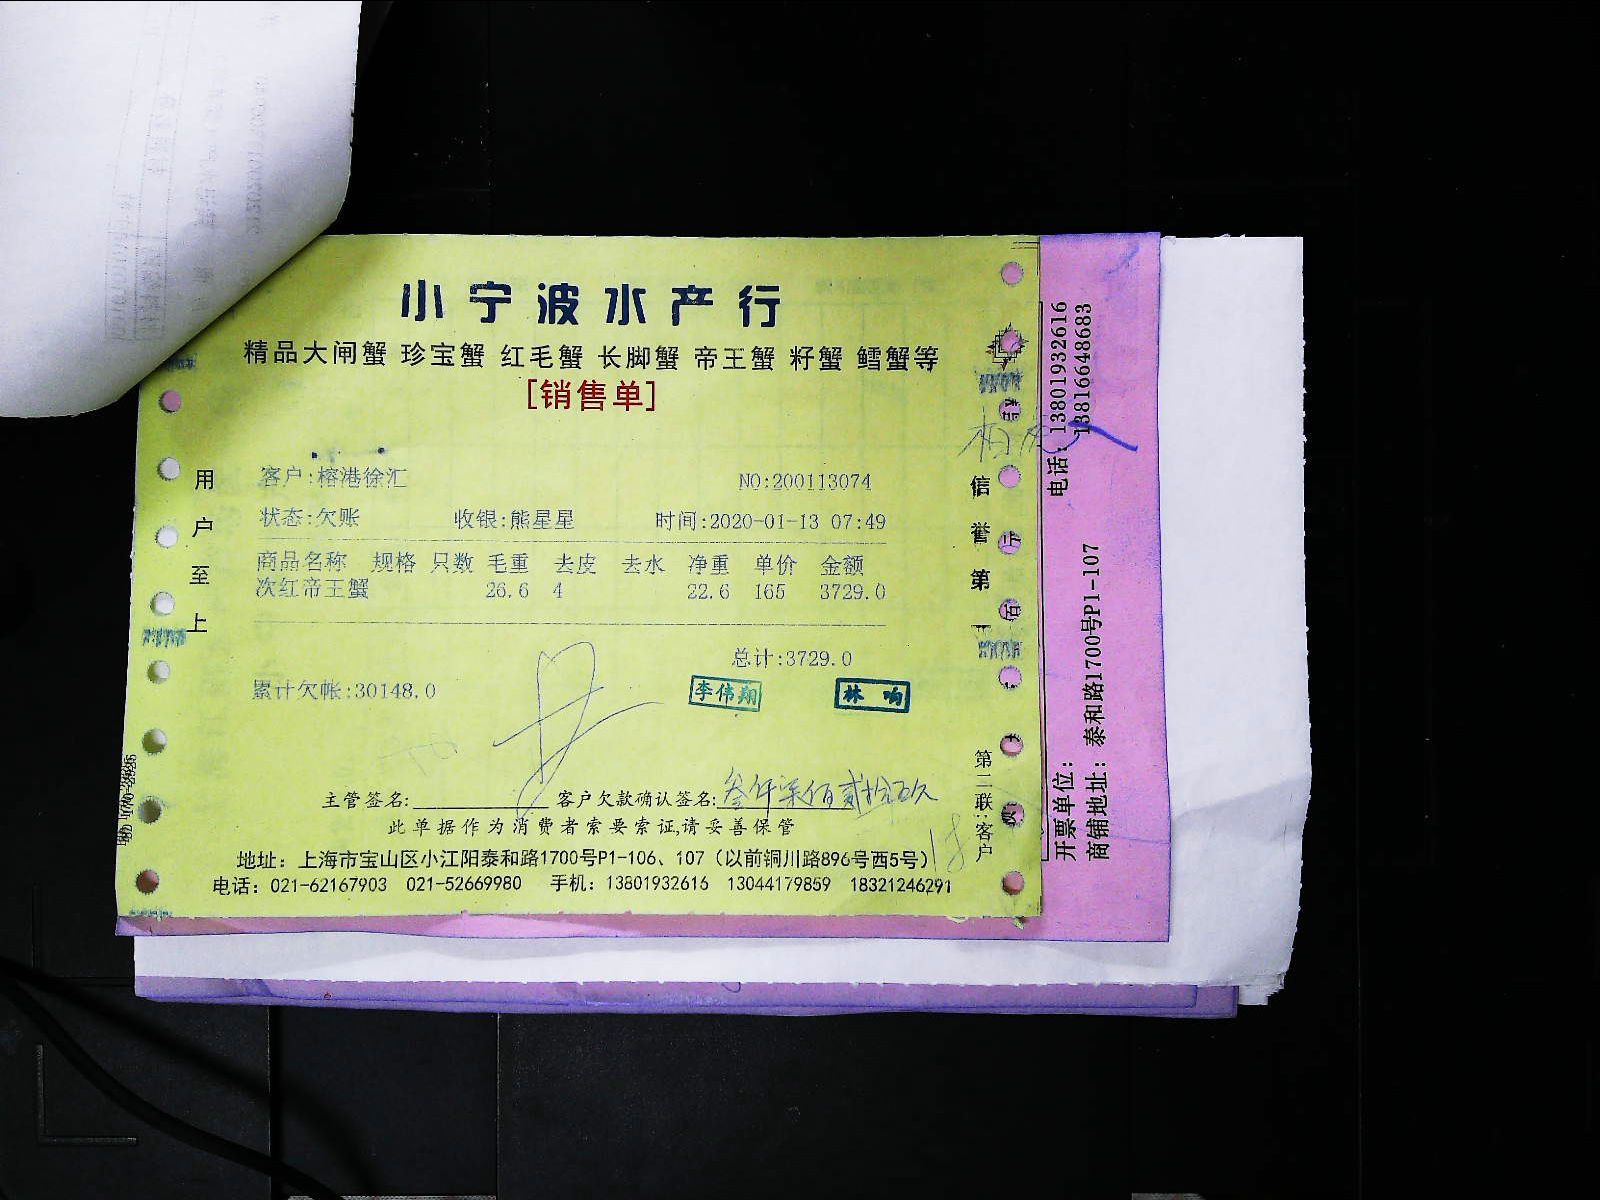 小宁波水产行
精品大闸蟹 珍宝蟹 红毛蟹 长脚蟹 帝王蟹 籽蟹 鳕蟹等
[销售单]
客户:榕港徐汇 NO:200113074
状态:欠账 收银:熊星星 时间:2020-01-13 07:49
商品名称 规格 只数 毛重 去皮 去水 净重 单价 金额
次红帝王蟹 26.6 4 22.6 165 3729.0
总计:3729.0
累计欠帐:30148.0
李伟翔 林响
主管签名: 客户欠款确认签名:叁仟柒佰贰拾玖
此单据作为消费者索要索证,请妥善保管
地址：上海市宝山区小江阳泰和路1700号P1-106、107（以前铜川路896号西5号）
电话：021-62167903 021-52669980 手机：13801932616 13044179859 18321246291
用户至上
信誉第一
第二联:客户
电话：13801932616
13816648683
开票单位：
商铺地址： 泰和路1700号P1-107